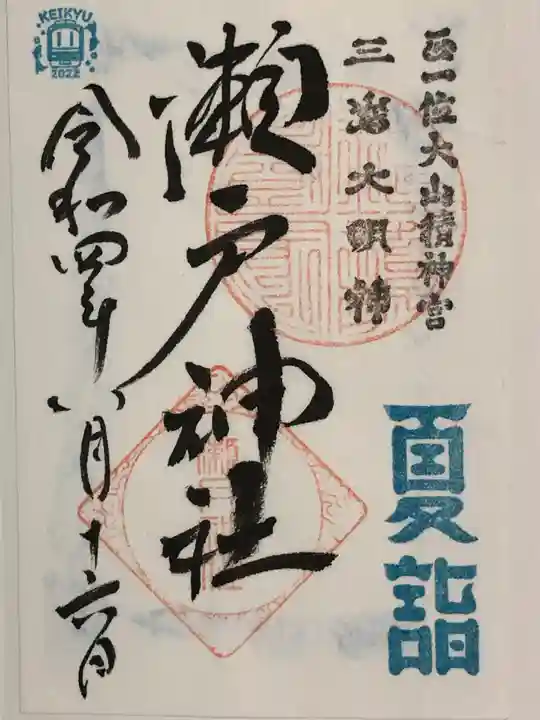 正一位大山積神宮
三島大明神
夏詣
瀬戸神社
令和四年八月十六日
KEIKYU
2022